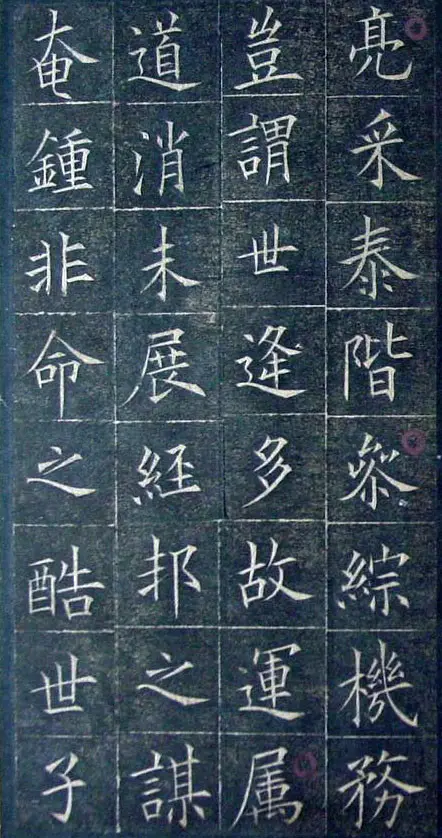 亮采泰階叅綜機務
豈謂世逢多故運属
道消未展經邦之謀
奄鍾非命之酷世子